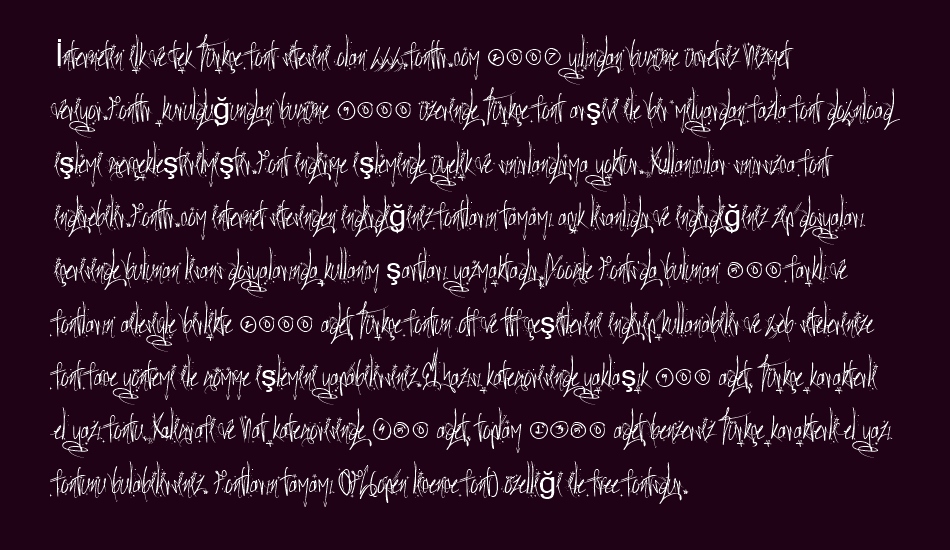 İnternetin ilk ve tek Türkçe font sitesini olan www.fonttr.com 2007 yılından bugüne ücretsiz hizmet
veriyor. Fonttr kurulduğundan bugüne 9000 üzerinde Türkçe font arşivi ile bir milyardan fazla font download
işlemi gerçekleştirilmiştir. Font indirme işleminde üyelik ve sınırlandırma yoktur. Kullanıcılar sınırsızca font
indirebilir. Fonttr.com internet sitesinden indirdiğiniz fontların tamamı açık lisanlıdır ve indirdiğiniz zip dosyaları
içerisinde bulunan lisans dosyalarında kullanım şartları yazmaktadır. Google Fonts'da bulunan 800 farklı ve
fontların ailesiyle birlikte 2000 adet Türkçe fontun otf ve ttf çeşitlerini indirip kullanabilir ve web sitelerinize
font face yöntemi ile gömme işlemini yapabilirsiniz. El yazısı kategorisinde yaklaşık 900 adet, Türkçe karakterli
el yazı fontu. Kaligrafi ve Hat kategorisinde 450 adet, toplam 1350 adet benzersiz Türkçe karakterli el yazı
fontunu bulabilirsiniz. Fontların tamamı OFL(open licence font) özelliği ile free fontsdur.